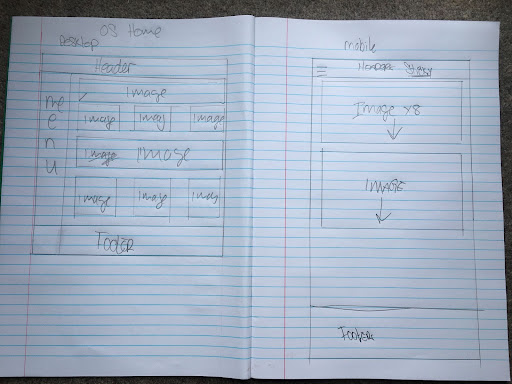 OS Home
DESKTOP
Header
menu
Image
Image Image Image
Image IMAGE
Image Image Image
FOOTER
mobile
HEADER STICKY
Image x8
IMAGE
FOOTER